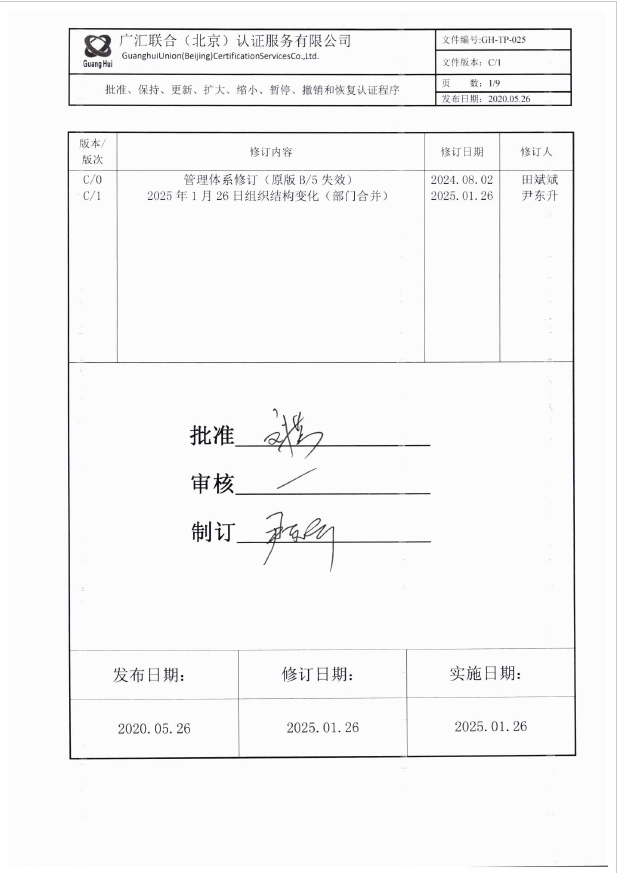 广汇联合（北京）认证服务有限公司
GuanghuiUnion(Beijing)CertificationServicesCo.,Ltd.
Guang Hui
批准、保持、更新、扩大、缩小、暂停、撤销和恢复认证程序
文件编号:GH-TP-025
文件版本: C/1
页 数: 1/9
发布日期: 2020.05.26
版本/版次 修订内容 修订日期 修订人
C/0 管理体系修订（原版 B/5 失效） 2024.08.02 田斌斌
C/1 2025 年 1 月 26 日组织结构变化（部门合并） 2025.01.26 尹东升
批准
审核
制订
发布日期: 修订日期: 实施日期:
2020.05.26 2025.01.26 2025.01.26